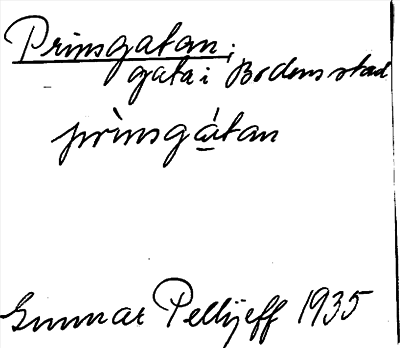 Prinsgatan;
gata i Bodens stad
prìnsgátan
Gunnar Pellijeff 1935